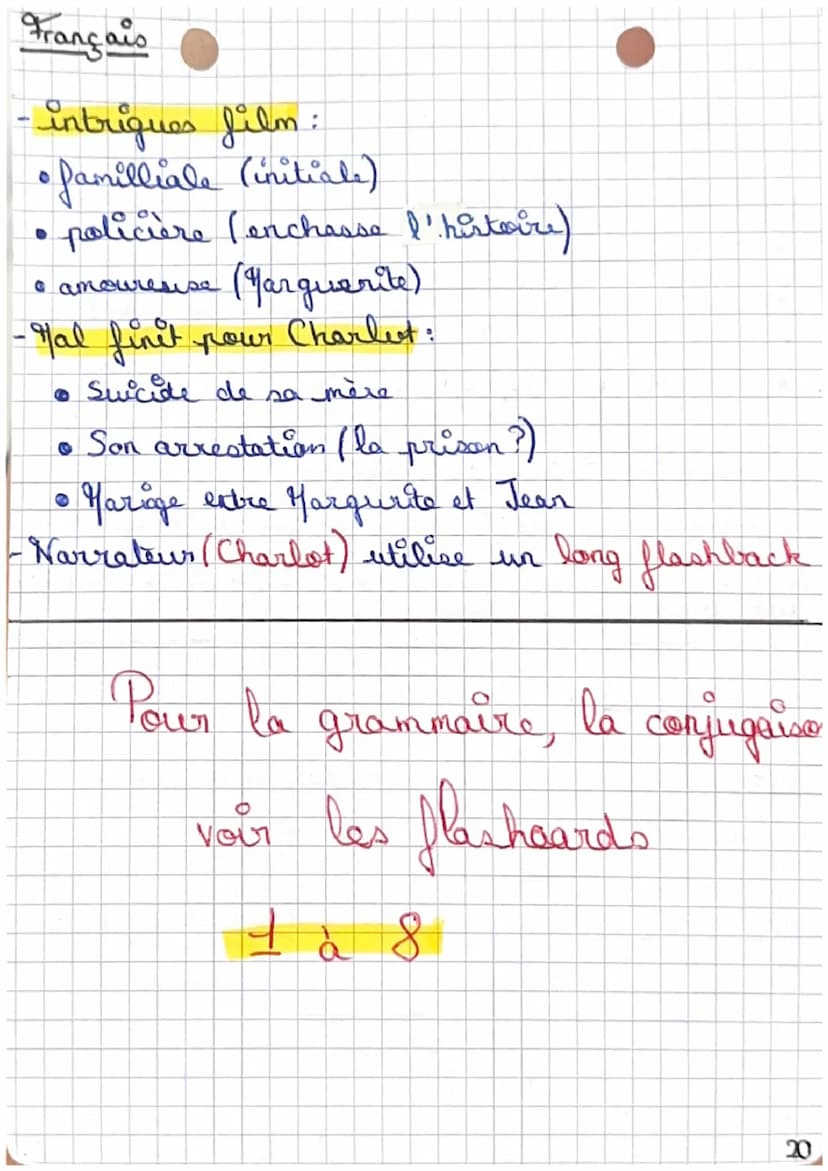 Français
- intrigues film :
• familliale (initiale)
• policière (enchasse l'histoire)
• amoureuse (Marguerite)
- Mal finit pour Charlot :
• Suicide de sa mère
• Son arrestation (la prison ?)
• Mariage entre Margurite et Jean
- Narrateur (Charlot) utilise un long flashback
Pour la grammaire, la conjugaiso
voir les flashcards
1 à 8
20